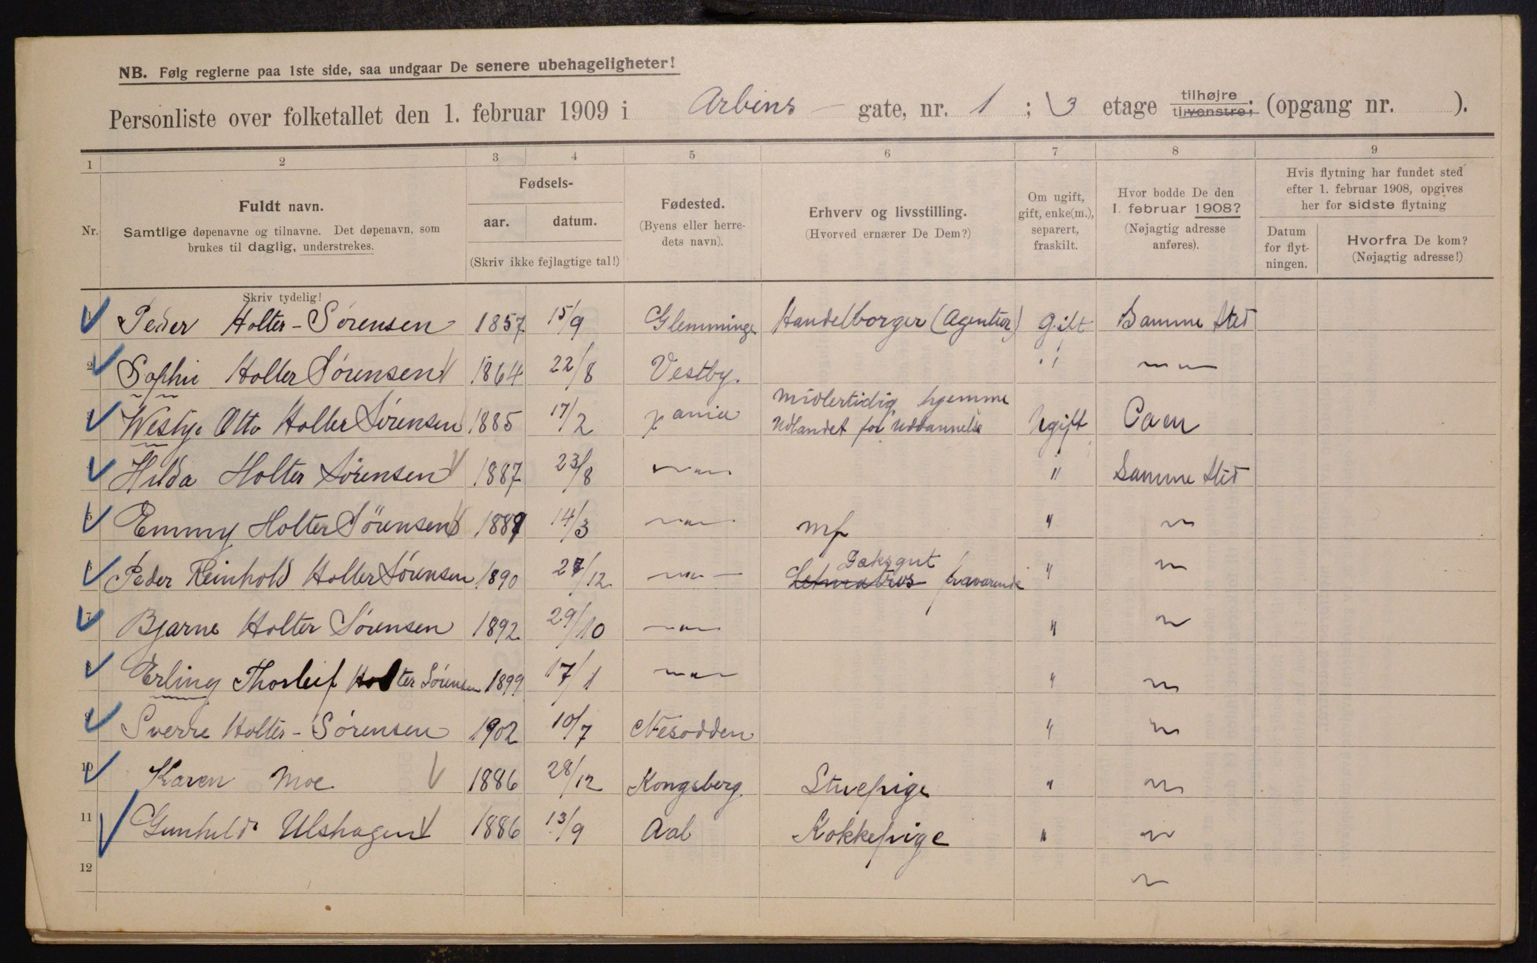 NB. Følg reglerne paa 1ste side, saa undgaar De senere ubehageligheter!
Personliste over folketallet den 1. februar 1909 i Arbins gate, nr. 1 ; 3 etage tilhøjre tilvenstre; (opgang nr. ).
1 2 3 4 5 6 7 8 9
Nr.
Fuldt navn.
Samtlige døpenavne og tilnavne. Det døpenavn, som
brukes til daglig, understrekes.
Skriv tydelig!
Fødsels-
aar. datum.
(Skriv ikke fejlagtige tal!)
Fødested.
(Byens eller herre-
dets navn).
Erhverv og livsstilling.
(Hvorved ernærer De Dem?)
Om ugift,
gift, enke(m.),
separert,
fraskilt.
Hvor bodde De den
1. februar 1908?
(Nøjagtig adresse
anføres).
Hvis flytning har fundet sted
efter 1. februar 1908, opgives
her for sidste flytning
Datum
for flyt-
ningen.
Hvorfra De kom?
(Nøjagtig adresse!)
Peder Holter-Sørensen 1857 15/9 Glemminge Handelborger (Agentur) Gift Samme sted
2 Sophie Holter Sørensen 1864 22/8 Vestby. " "
Westye Otto Holter Sørensen 1885 17/2 Xania Midlertidig hjemme
Udlandet for Uddannelse Ugift Caen
Hilda Holter Sørensen 1887 23/8 " " Samme sted
5 Emmy Holter Sørensen 1889 14/3 " " "
Peder Reinhold Holter Sørensen 1890 27/12 " Dæksgut
Letmatros fraværende " "
7 Bjarne Holter Sørensen 1892 29/10 " " "
Erling Thorleif Holter Sørensen 1899 17/1 " " "
Sverre Holter-Sørensen 1902 10/7 Nesodden " "
10 Karen Moe 1886 28/12 Kongsberg Stuepige " "
11 Gunhild Ulshagen 1886 13/9 Aal Kokkepige " "
12 "